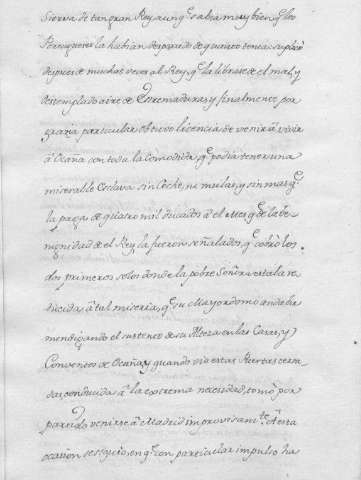 sierva de tan gran Rey aunq.e sabia muy bien q.e los
Portugueses la habian despojado de quanto tenia, suplicó
despues de muchas veces al Rey, q.e la librase de el mal, y
destemplado aire de Extremadura, y finalmente por
gracia particular obtuvo licencia de venir á vivir
á Ocaña con toda la comodidad, q.e podia tener una
miserable Esclava sin Coche, ni mulas, y sin mas q.e
la paga de quatro mil ducados á el Mes q.e de la be-
nignidad de el Rey la fueron señalados, q.e cobró los
dos primeros solos donde la pobre Señora estaba re-
ducida á tal miseria, q.e su Mayordomo andaba
mendigando el sustento de su Alteza en las Casas, y
Conventos de Ocaña, y quando vio estas Puertas cerra-
das conducida á la extrema necesidad, tomó por
partido venirse á Madrid improvisam.te. A esta
ocasion se siguio, en q.e con particular impulso ha